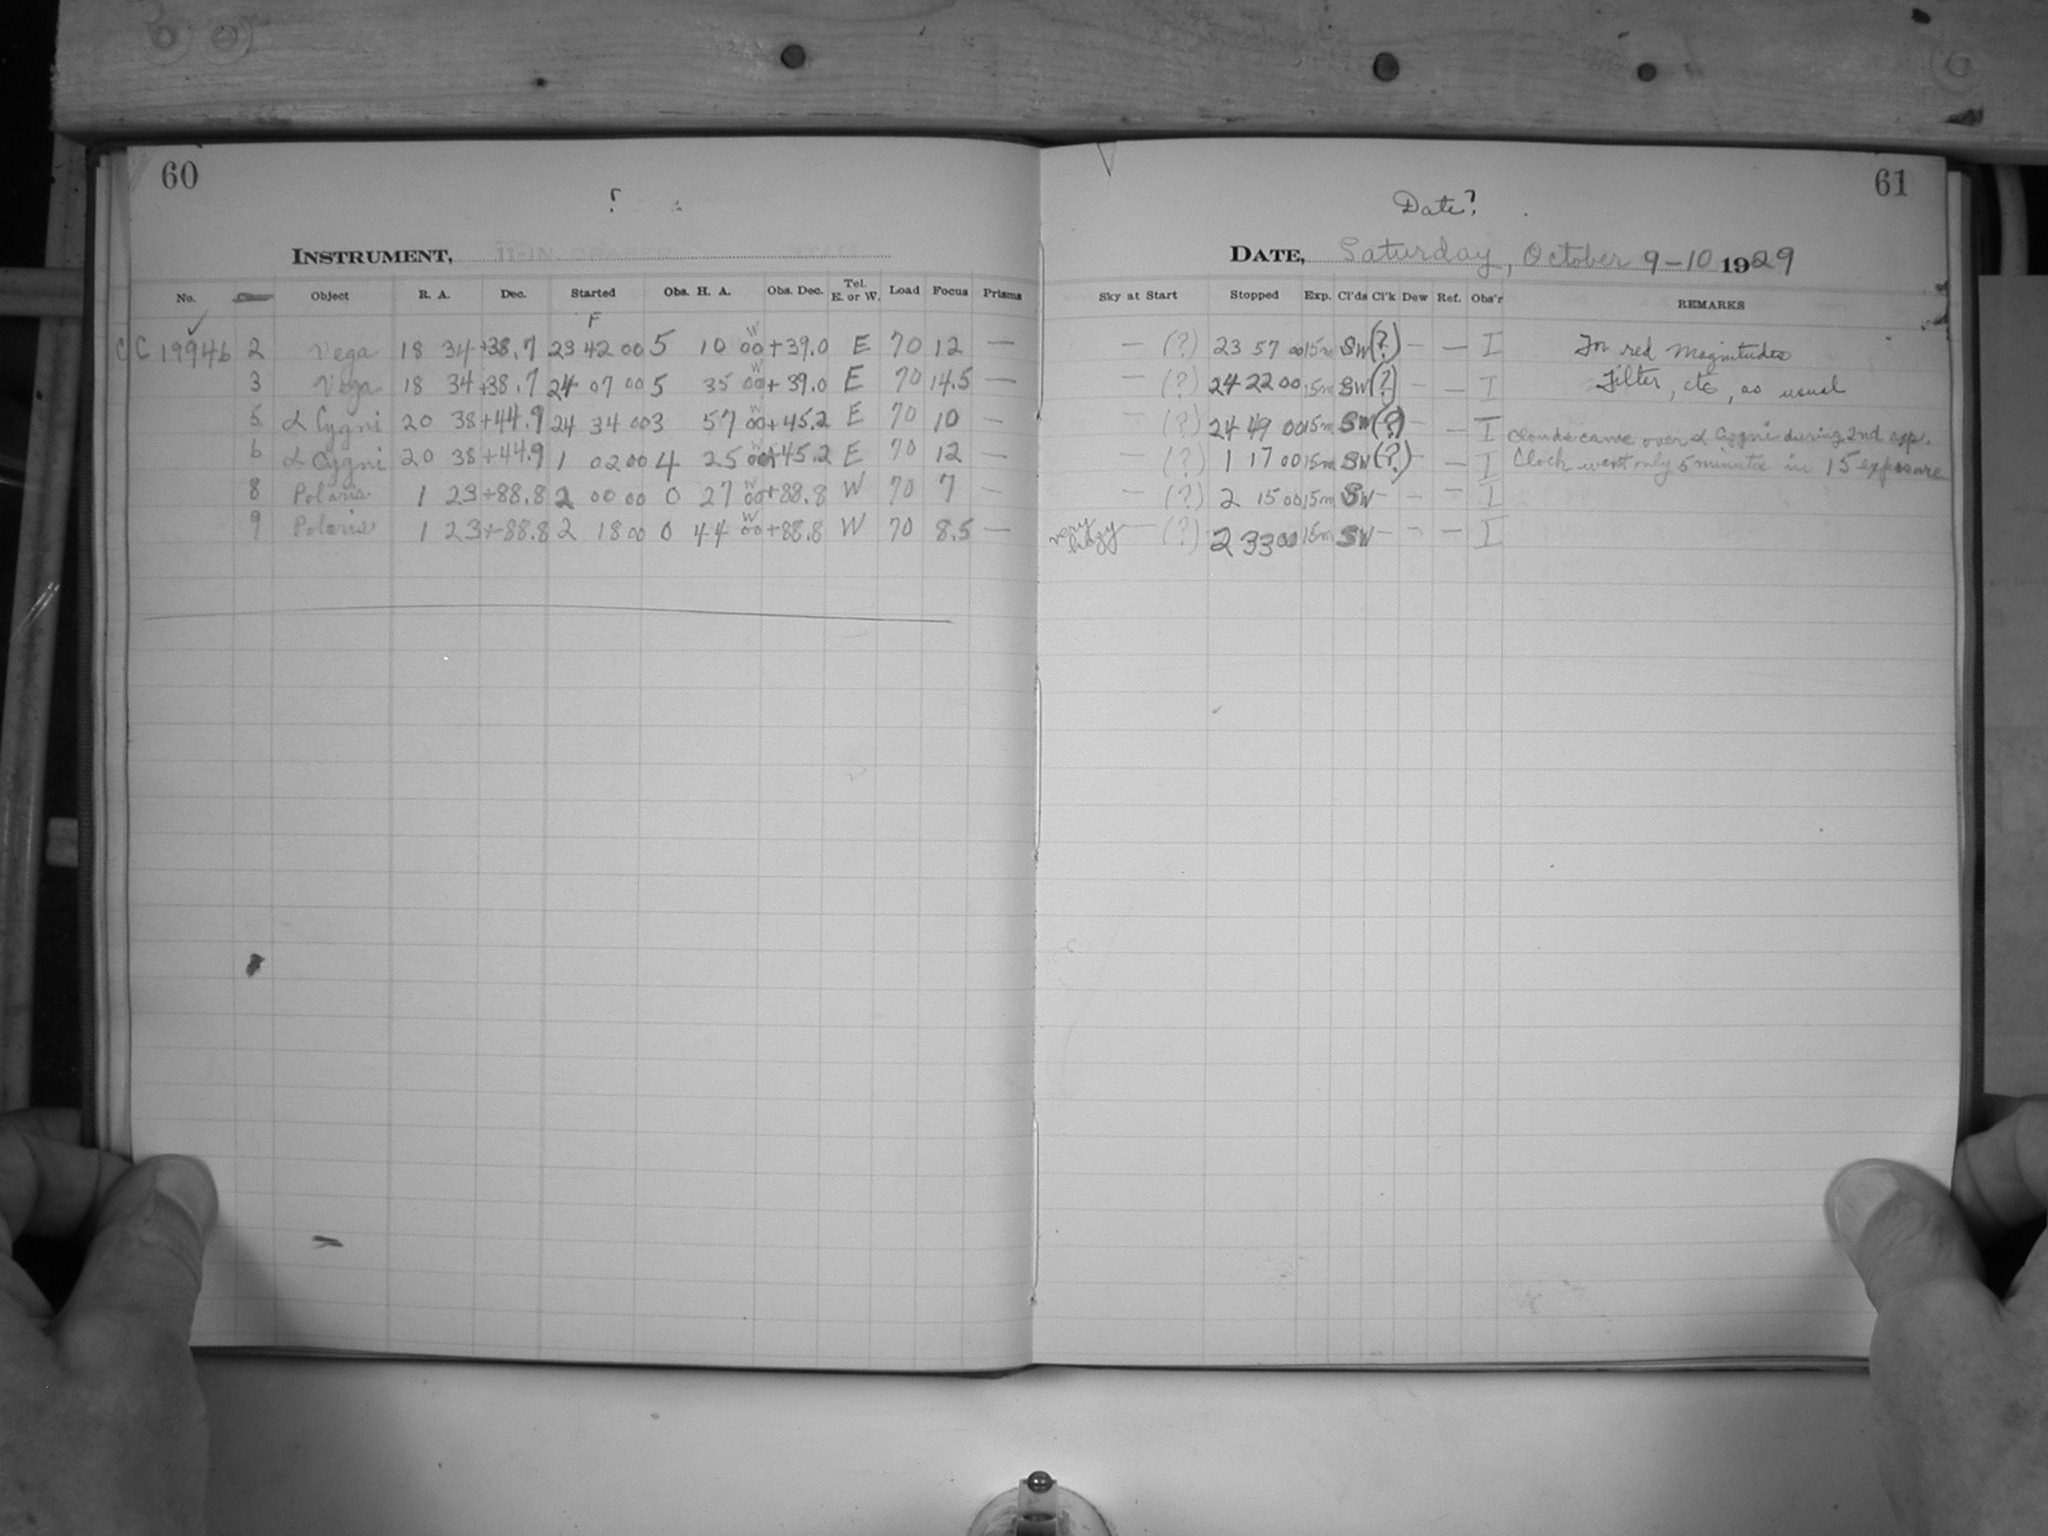 60
?
INSTRUMENT, 11-IN. DRAPER
No. Object R. A. Dec. Started Obs. H. A. Obs. Dec. Tel. E. or W. Load Focus Prisms
F
C C 19946 2 Vega 18 34 +38.7 23 42 00 5 10 00 W +39.0 E 70 12 —
3 Vega 18 34 +38.7 24 07 00 5 35 00 W +39.0 E 70 14.5 —
5 α Cygni 20 38 +44.9 24 34 00 3 57 00 W +45.2 E 70 10 —
6 α Cygni 20 38 +44.9 1 02 00 4 25 00 W +45.2 E 70 12 —
8 Polaris 1 23 +88.8 2 00 00 0 27 00 W +88.8 W 70 7 —
9 Polaris 1 23 +88.8 2 18 00 0 44 00 W +88.8 W 70 8.5 —
61
Date?
DATE, Saturday, October 9-10 1929
Sky at Start Stopped Exp. Cl'ds Cl'k Dew Ref. Obs'r REMARKS
— (?) 23 57 00 15m SW (?) — — I For red Magnitudes
— (?) 24 22 00 15m SW (?) — — I Filter, etc, as usual
— (?) 24 49 00 15m SW (?) — — I Clouds came over α Cygni during 2nd exp.
— (?) 1 17 00 15m SW (?) — — I Clock went only 5 minutes in 15 exposure
— (?) 2 15 00 15m SW — — — I
very hazy — (?) 2 33 00 15m SW — — — I